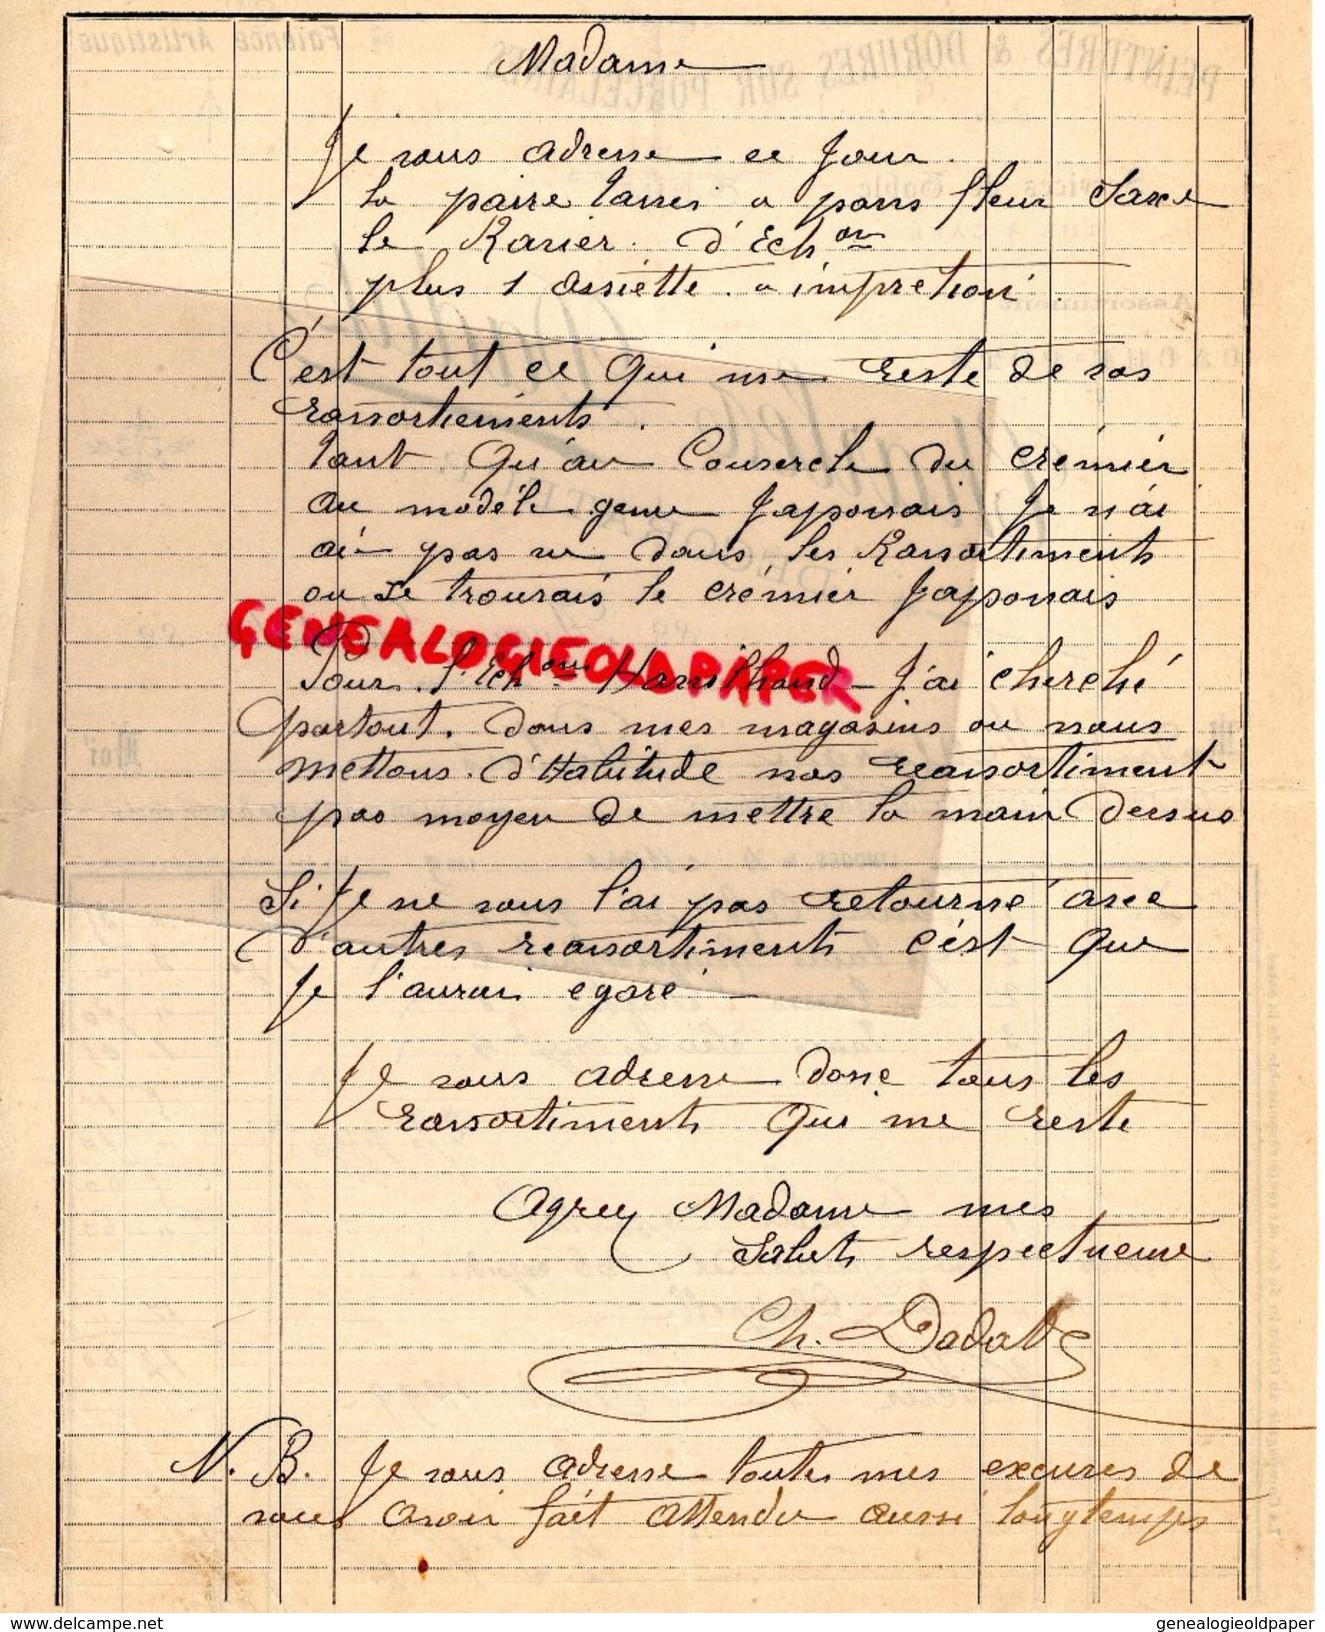 Madame
Je vous adresse ce jour.
la paire tasses a pans fleur Saxe
le Ravier. d'Echon
plus 1 assiette. a impretion.
C'est tout ce qui me reste de vos
rassortiements.
tant qu'au Couvercle du crémier
au modéle genre Japonais Je n'ai
pas vu dans les Rassortiments
ou Je trouvais le crémier Japonais
GENEALOGIEOLDPAPER
Pour l'Echon J'ai cherché
partout. dans mes magasins ou nous
mettons. d'Habitude nos reassortiment
pas moyen de mettre la main dessus
Si Je ne vous l'ai pas retourné avec
d'autres reassortiments c'ést que
Je l'aurai egaré
Je vous adresse donc tous les
rassortiments qui me reste
Agréez Madame mes
Saluts respectueux
Ch. Dadat
N. B. Je vous adresse toutes mes excuses de
vous avoir fait attendre aussi longtemps
www.delcampe.net
genealogieoldpaper
PEINTURES & DORURES SUR PORCELAINES
Faïence Artistique